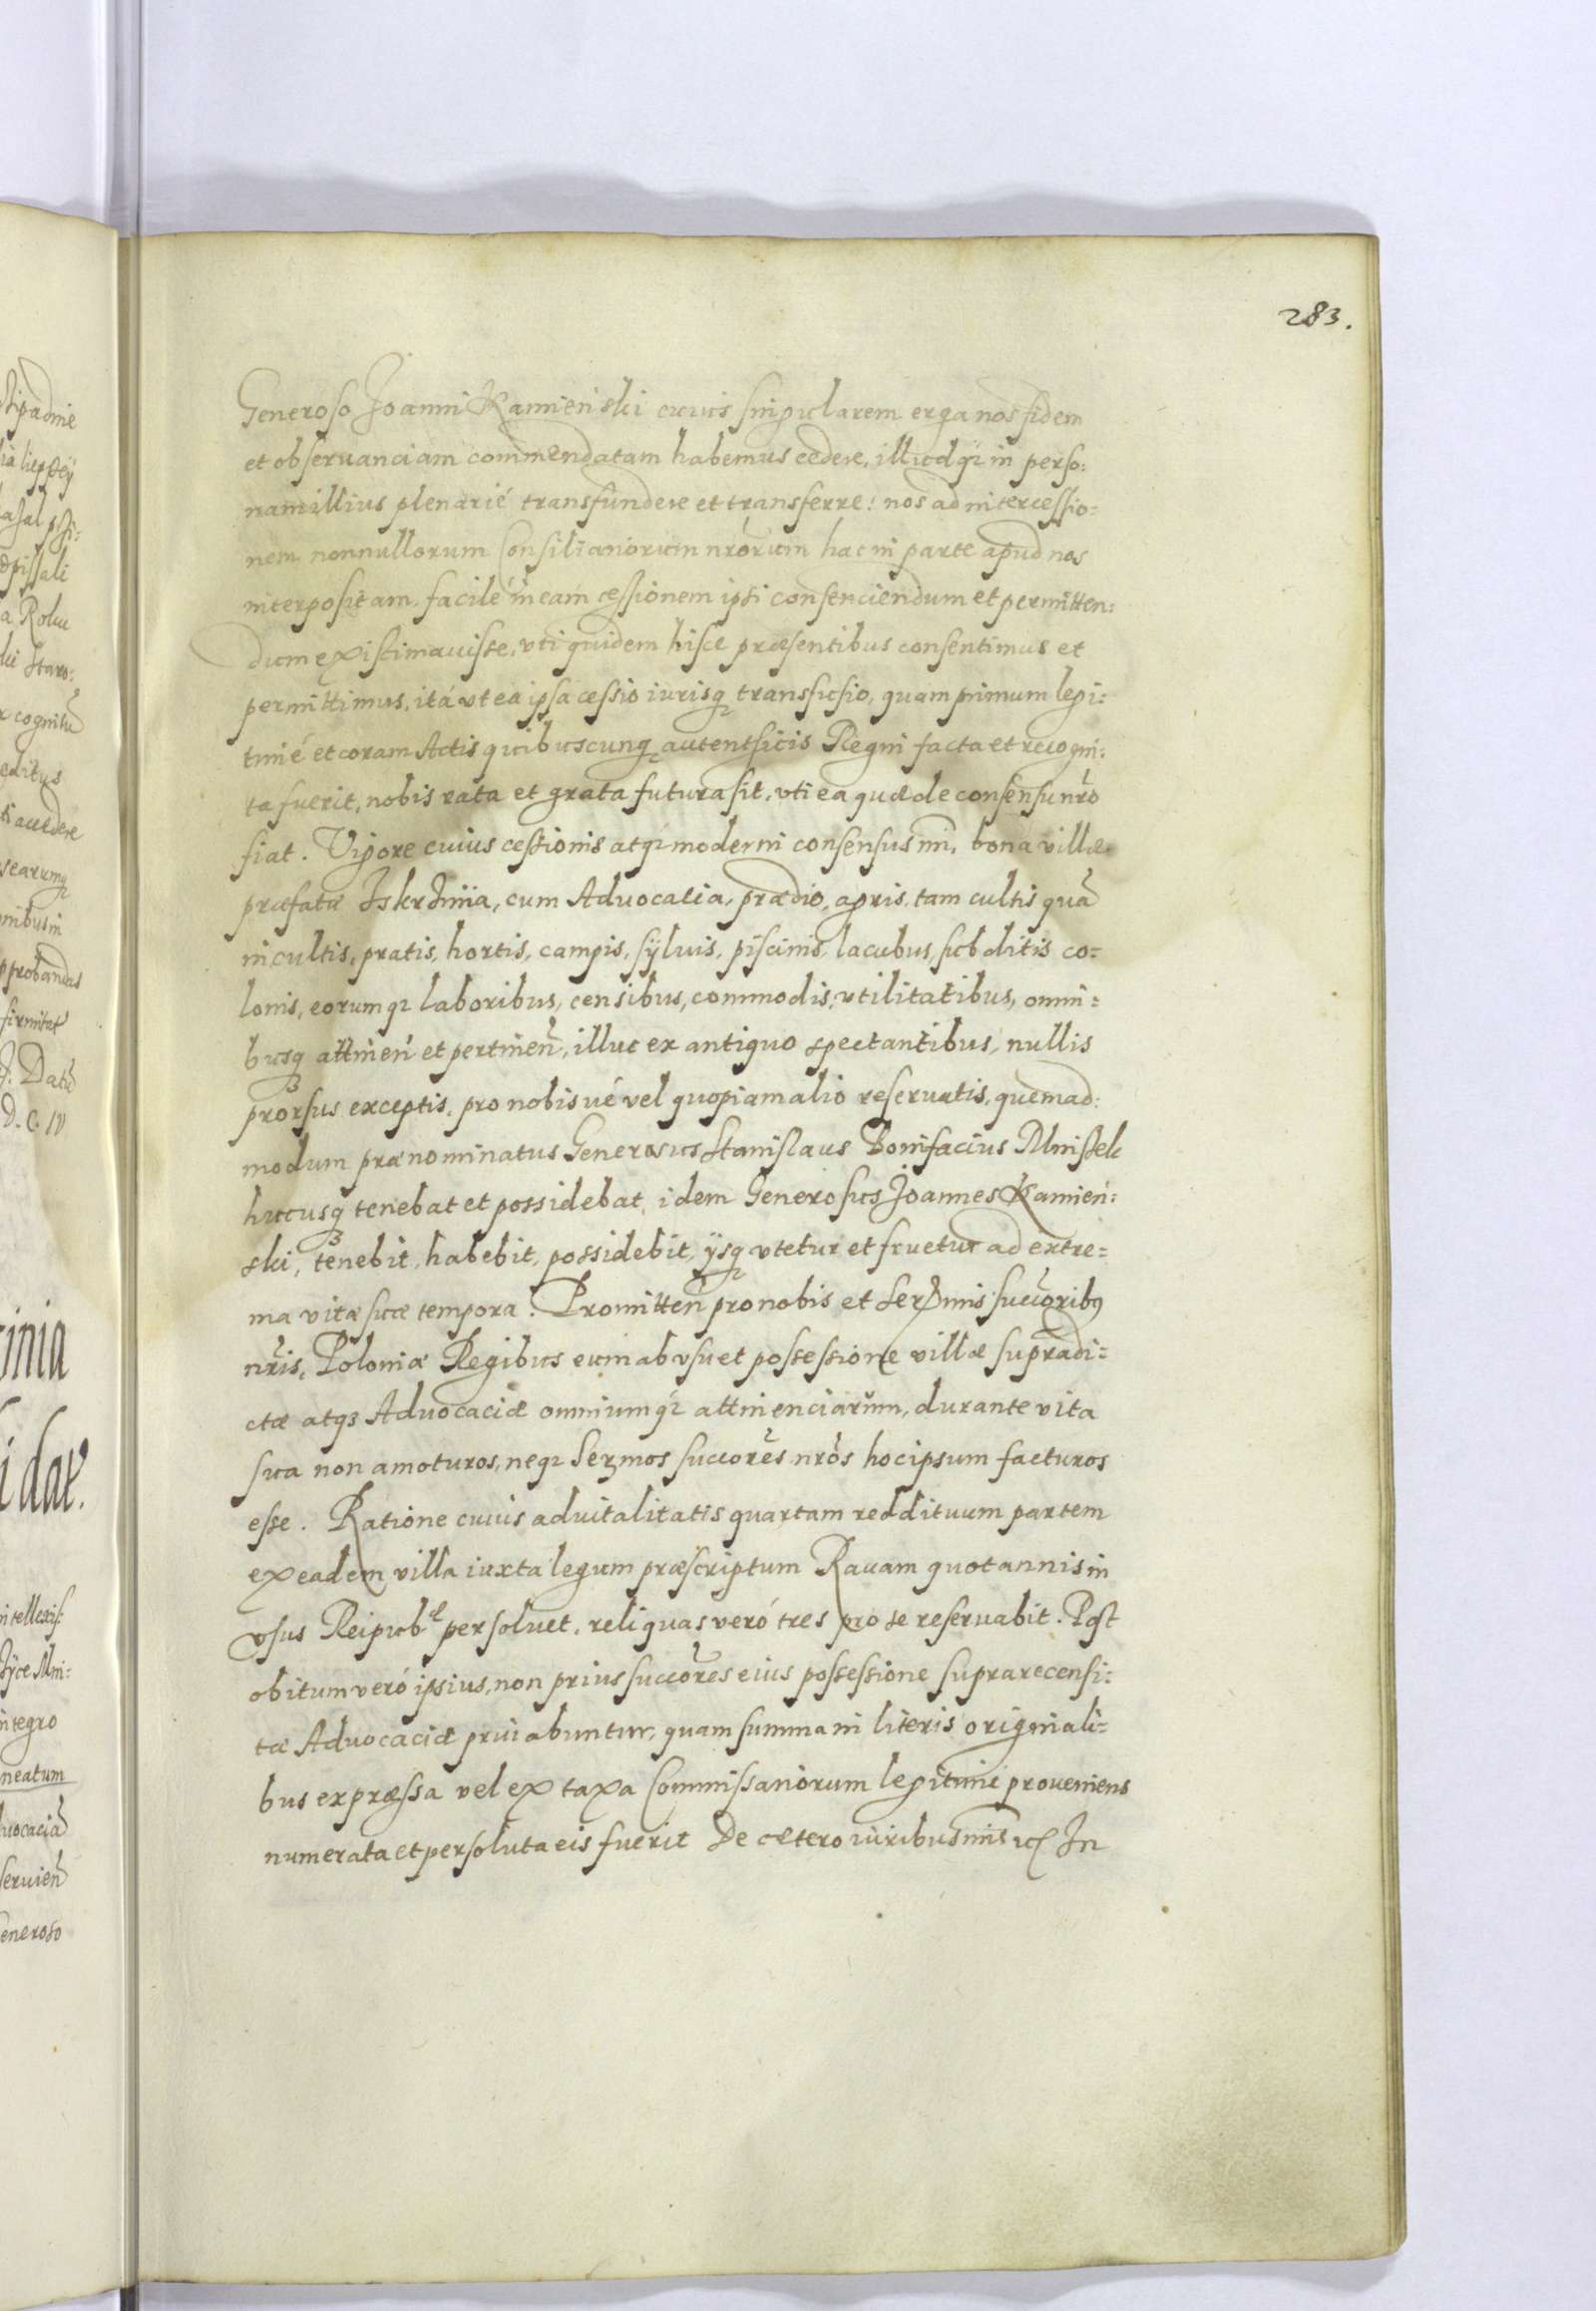 283.
Generoso Joanni Kamieński cuius singularem erga nos fidem
et obseruanciam commendatam habemus cedere, illudq; in perso:
nam illius plenarié transfundere et transferre: nos ad intercessio:
nem nonnullorum Consiliariorum nr̃orum hac in parte apud nos
interpositam, facilé in eam cessionem ipsi consenciendum et permitten:
dum existimauisse, vti quidem hisce præsentibus consentimus et
permittimus, itá vt ea ipsa cessio iurisq; transfusio, quam primum legi:
timé et coram Actis quibuscunq; autentficis Regni facta et recogni:
ta fuerit, nobis rata et grata futura sit, vti ea quæ de consensu nr̃o
fiat. Vigore cuius cessionis atq; moderni consensus nri, bona villæ
præfatæ Iskrzinia, cum Aduocatia, prædio, agris, tam cultis quã
incultis, pratis, hortis, campis, sÿluis, piscinis, lacubus, subditis co=
lonis, eorumq; laboribus, censibus, commodis, vtilitatibus, omni=
busq; attineñ et pertineñ, illuc ex antiquo spectantibus, nullis
prorsus exceptis, pro nobis ué vel quopiam alio reseruatis, quemad:
modum prænominatus Generosus Stanislaus Bonifacius Mniszek
hucusq; tenebat et possidebat, idem Generosus Joannes Kamień:
ski, tenebit, habebit, possidebit, ÿsq; vtetur et fruetur ad extre=
ma vitæ suæ tempora. Promitteñ pro nobis et Serznis succoribq
nr̃is, Poloniæ Regibus eum ab vsu et possessione villæ supradi=
ctæ atq; Aduocaciæ omniumq; attinenciarum, durante vita
sua non amoturos, neq; Serzmos succores nr̃os hoc ipsum facturos
esse. Ratione cuius aduitalitatis quartam reddituum partem
ex eadem villa iuxta legum præscriptum Rauam quotannis in
vsus Reipub persoluet, reliquas veró tres pro se reseruabit. Post
obitum veró ipsius, non prius succores eius possessione supra recensi:
tæ Aduocaciæ priuabuntur, quam summa in literis originali=
bus expræssa vel ex taxa Commissariorum legitimé proueniens
numerata et persoluta eis fuerit De cætero iuribus nris In